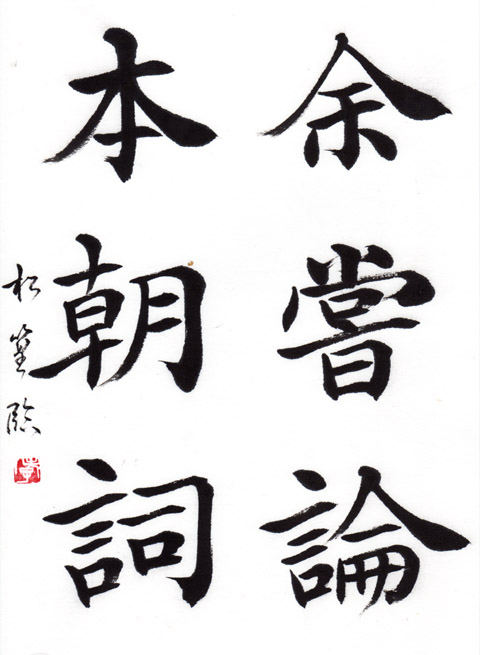 余嘗論
本朝詞
松篁臨